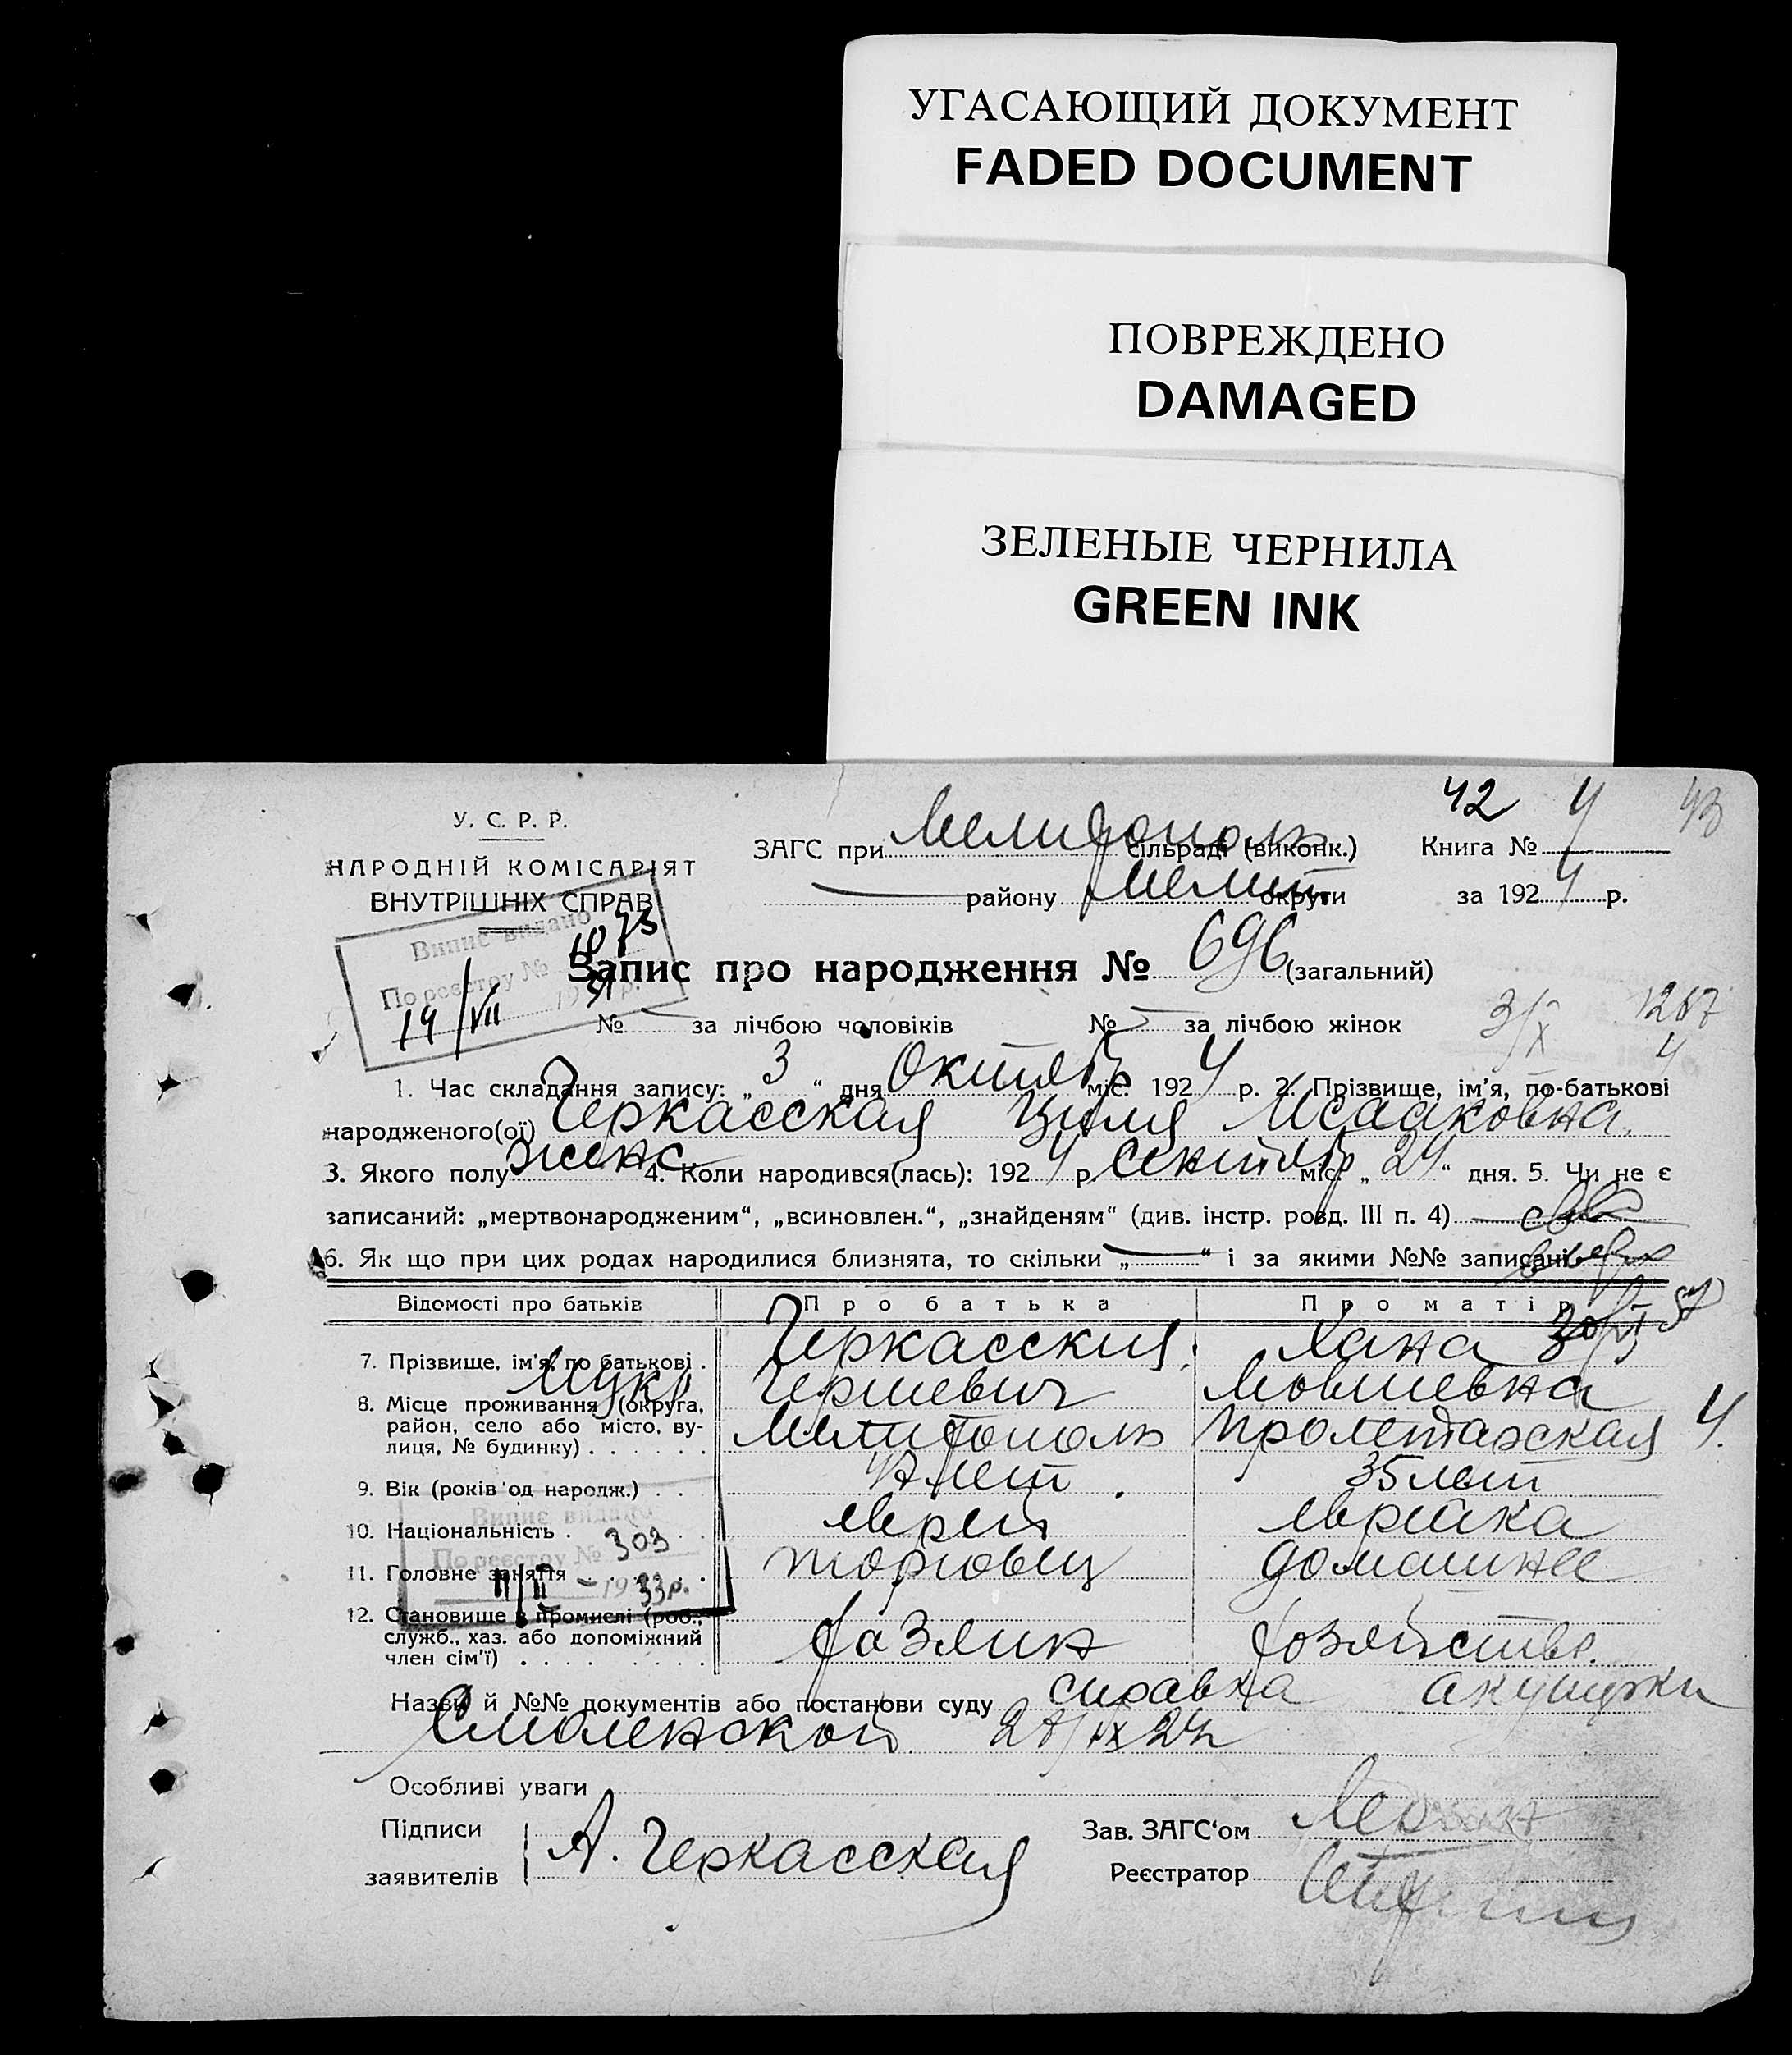 УГАСАЮЩИЙ ДОКУМЕНТ
FADED DOCUMENT
ПОВРЕЖДЕНО
DAMAGED
ЗЕЛЕНЫЕ ЧЕРНИЛА
GREEN INK
42 4 43
У. С. Р. Р.
НАРОДНІЙ КОМІСАРІЯТ
ВНУТРІШНІХ СПРАВ
ЗАГС при Мелитополь сільраді (виконк.) Книга №
району Мелит округи за 1924 р.
Випис видано
По реєстру № 1073
19/VII 19 р.
Запис про народження № 696 (загальний)
№ за лічбою чоловіків № за лічбою жінок 3/X 1267
4
1. Час складання запису: „3“ дня Октябр міс. 1924 р. 2. Прізвище, ім'я, по-батькові
народженого(ої) Черкасская Циля Исааковна.
3. Якого полу женс 4. Коли народився(лась): 1924 р. Сентябр міс. „24“ дня. 5. Чи не є
записаний: „мертвонародженим“, „всиновлен.“, „знайденям“ (див. інстр. розд. III п. 4)
6. Як що при цих родах народилися близнята, то скільки „—“ і за якими №№ записані
Відомості про батьків Про батька Про матір
7. Прізвище, ім'я, по батькові . Черкасский Хана
8. Місце проживання (округа, Гершевич Мовшевна
район, село або місто, ву-
лиця, № будинку) . . . . . . Мелитополь Пролетарская 4.
9. Вік (років од народж.) . . 47 лет 35 лет
10. Національність . еврей еврейка
Випис видано
По реєстру № 303
11/II - 1933р.
11. Головне заняття торговец домашнее
12. Становище в промислі (роб.,
служб., хаз. або допоміжний
член сім'ї) . . . . . . . . хазяин хозяйство.
Назви й №№ документів або постанови суду справка акушерки
Смоленской. 27/IX 24
Особливі уваги
Підписи
заявителів А. Черкасская
Зав. ЗАГС‘ом
Реєстратор